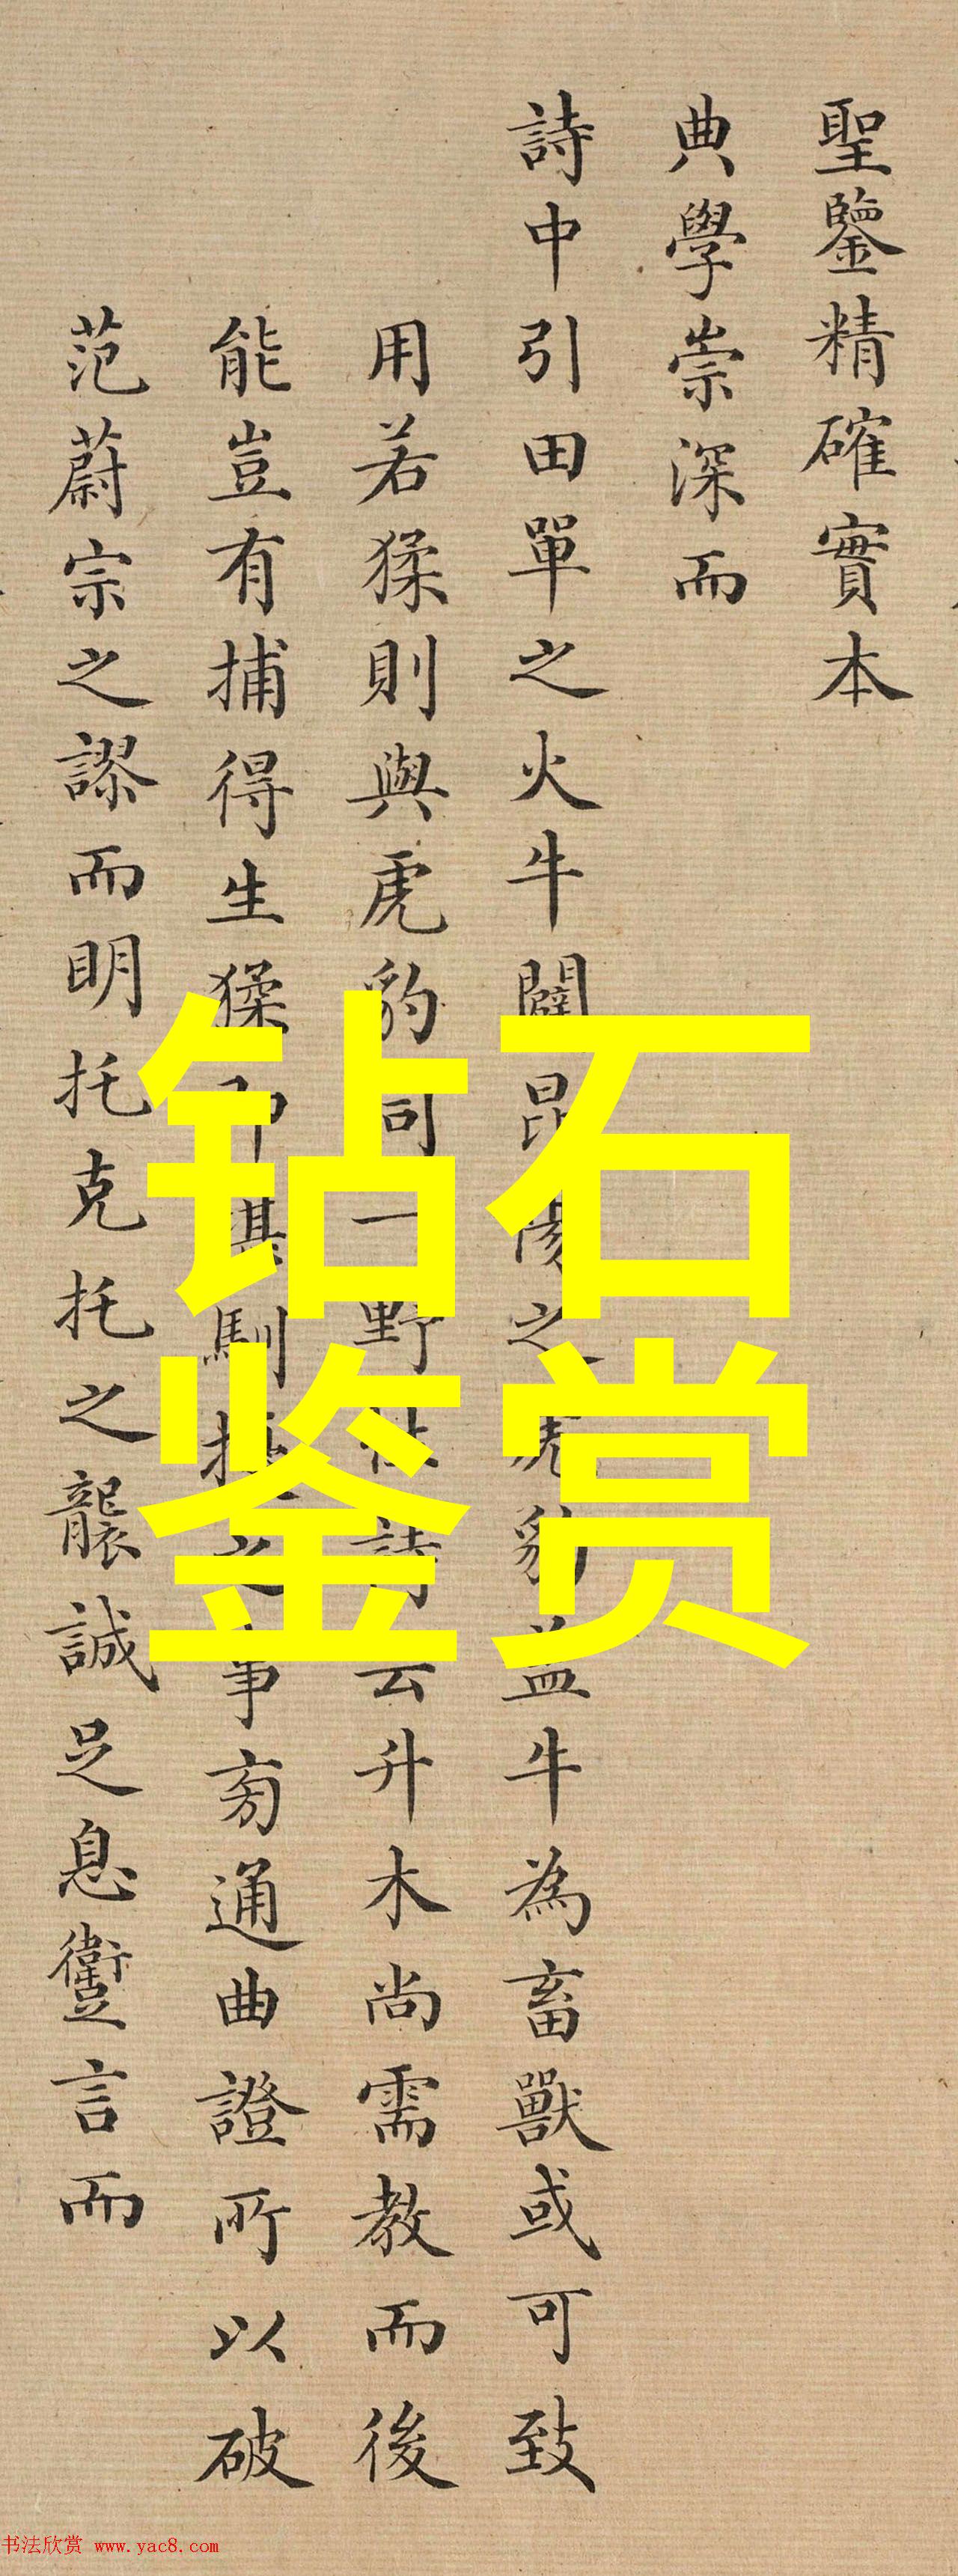 聖鑒精確實本
典學崇深而
詩中引田單之火牛闢昆陽之虎豹蓋牛為畜獸或可致
用若猱則與虎豹同一野性詩云升木尚需教而後
能豈有捕得生猱即堪馴擾之事旁通曲證所以破
范蔚宗之謬而明托克托之襲誠足息躗言而
钻石
鉴赏
书法欣赏 www.yac8.com